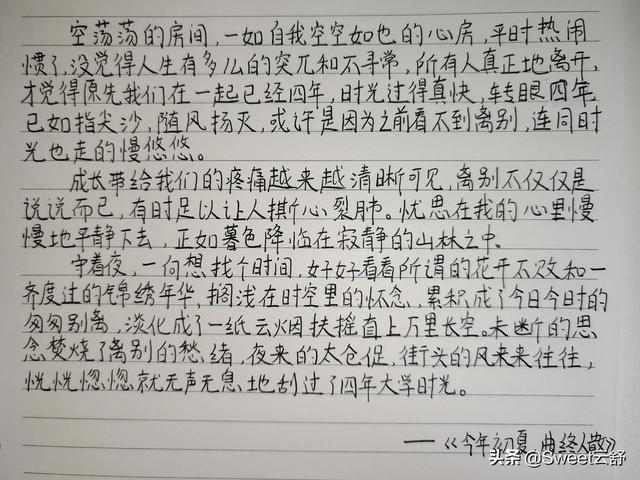 空荡荡的房间，一如自我空空如也的心房，平时热闹
惯了，没觉得人生有多么的突兀和不寻常，所有人真正地离开，
才觉得原先我们在一起已经四年，时光过得真快，转眼四年
已如指尖沙，随风扬灭，或许是因为之前看不到离别，连同时
光也走的慢悠悠。
成长带给我们的疼痛越来越清晰可见，离别不仅仅是
说说而已，有时足以让人撕心裂肺。忧思在我的心里慢
慢地平静下去，正如暮色降临在寂静的山林之中。
守着夜，一向想找个时间，好好看看所谓的花开不败和一
齐度过的锦绣年华，搁浅在时空里的怀念，累积成了今日今时的
匆匆别离，淡化成了一纸云烟扶摇直上万里长空。未断的思
念焚烧了离别的愁绪，夜来的太仓促，街头的风来来往往，
恍恍惚惚就无声无息地刮过了四年大学时光。
——《今年初夏，曲终人散》
头条 @Sweet云舒